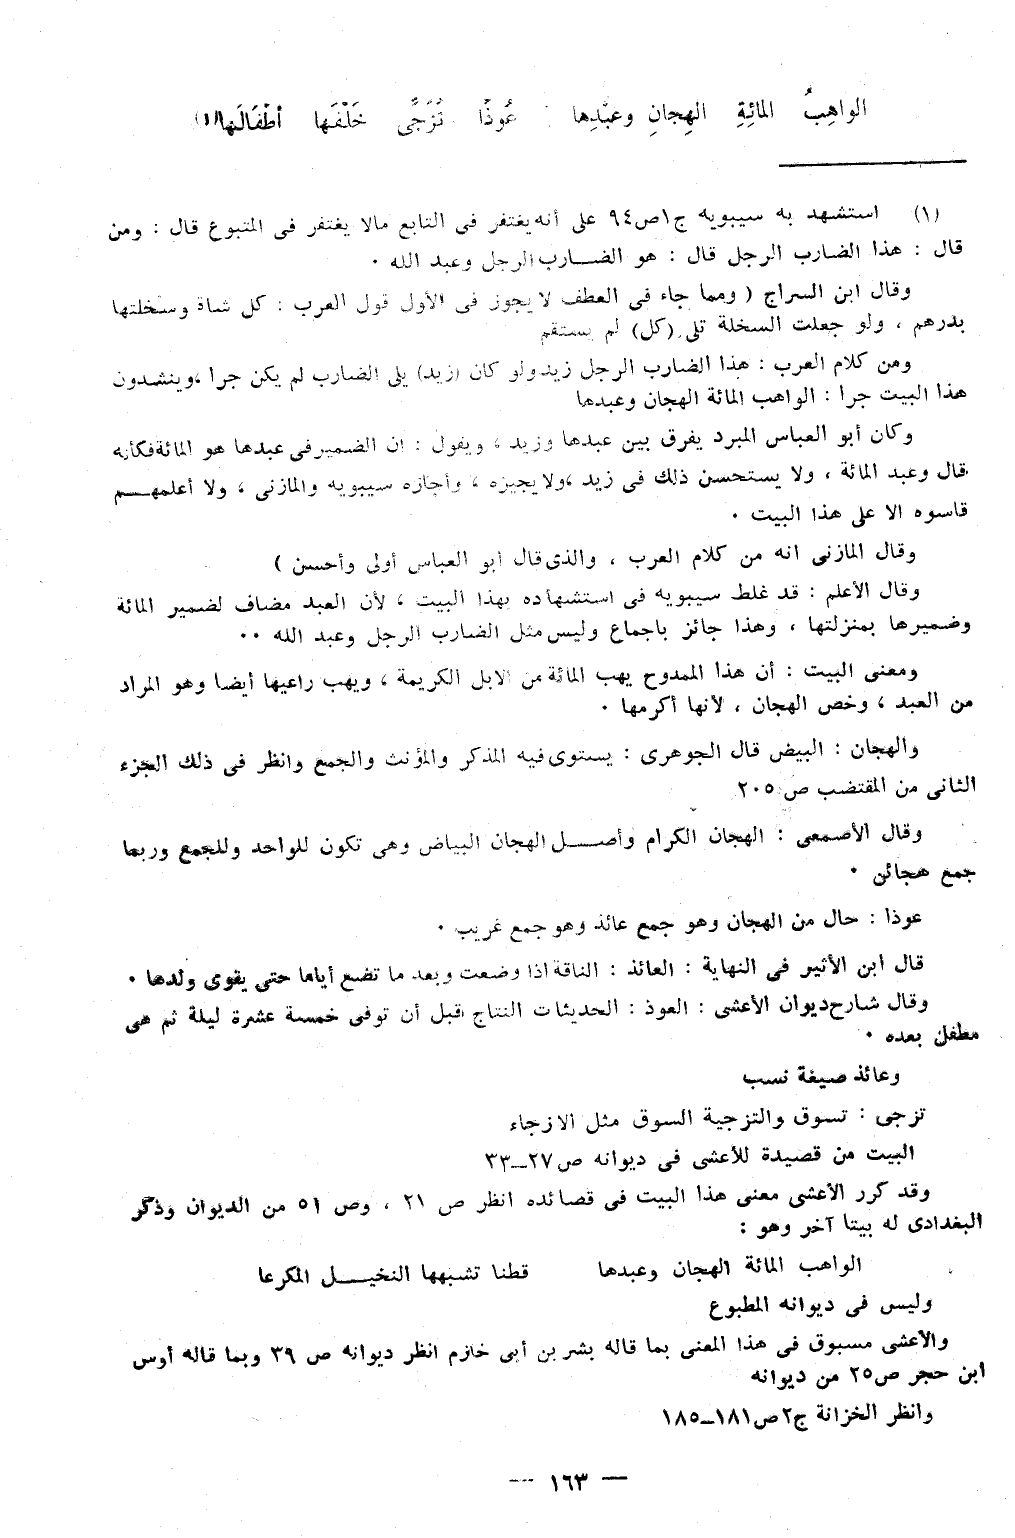 الواهِبُ المائِةِ الهِجانِ وعبْدِها : عُوذًا تُزَجَّى خَلْفَها أطْفَالَها(١)
(١) استشهد به سيبويه ج١ص٩٤ على أنه يغتفر فى التابع مالا يغتفر فى المتبوع قال : ومن
قال : هذا الضارب الرجل قال : هو الضــارب الرجل وعبد الله ٠
وقال ابن السراج ( ومما جاء فى العطف لا يجوز فى الأول قول العرب : كل شاة وسخلتها
بدرهم ، ولو جعلت السخلة تلى (كل) لم يستقم
ومن كلام العرب : هذا الضارب الرجل زيد ولو كان (زيد) يلى الضارب لم يكن جرا ،وينشدون
هذا البيت جرا : الواهب المائة الهجان وعبدها
وكان أبو العباس المبرد يفرق بين عبدها وزيد ، ويقول : ان الضمير فى عبدها هو المائة فكأنه
قال وعبد المائة ، ولا يستحسن ذلك فى زيد ،ولا يجيزه ، وأجازه سيبويه والمازنى ، ولا أعلمهــم
قاسوه الا على هذا البيت ٠
وقال المازنى انه من كلام العرب ، والذى قال أبو العباس أولى وأحسن )
وقال الأعلم : قد غلط سيبويه فى استشهاده بهذا البيت ، لأن العبد مضاف لضمير المائة
وضميرها بمنزلتها ، وهذا جائز باجماع وليس مثل الضارب الرجل وعبد الله ٠٠
ومعنى البيت : أن هذا الممدوح يهب المائة من الابل الكريمة ، ويهب راعيها أيضا وهو المراد
من العبد ، وخص الهجان ، لأنها أكرمها ٠
والهجان : البيض قال الجوهرى : يستوى فيه المذكر والمؤنث والجمع وانظر فى ذلك الجزء
الثانى من المقتضب ص ٢٠٥
وقال الأصمعى : الهجان الكرام وأصــل الهجان البياض وهى تكون للواحد وللجمع وربما
جمع هجائن ٠
عوذا : حال من الهجان وهو جمع عائذ وهو جمع غريب ٠
قال ابن الأثير فى النهاية : العائذ : الناقة اذا وضعت وبعد ما تضع أياما حتى يقوى ولدها ٠
وقال شارح ديوان الأعشى : العوذ : الحديثات النتاج قبل أن توفى خمسة عشرة ليلة ثم هى
مطفل بعده ٠
وعائذ صيغة نسب
تزجى : تسوق والتزجية السوق مثل الازجاء
البيت من قصيدة للأعشى فى ديوانه ص ٢٧ــ٣٣
وقد كرر الأعشى معنى هذا البيت فى قصائده انظر ص ٢١ ، وص ٥١ من الديوان وذكر
البغدادى له بيتا آخر وهو :
الواهب المائة الهجان وعبدها قطنا تشبهها النخيــل المكرعا
وليس فى ديوانه المطبوع
والأعشى مسبوق فى هذا المعنى بما قاله بشر بن أبى خازم انظر ديوانه ص ٣٩ وبما قاله أوس
ابن حجر ص٢٥ من ديوانه
وانظر الخزانة ج٢ص١٨١ــ١٨٥
— ١٦٣ —